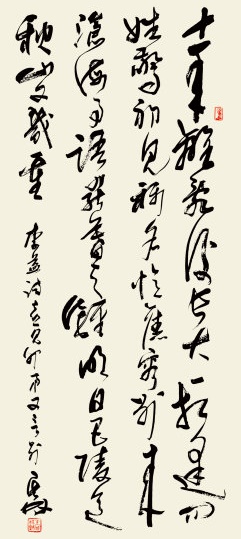 十年離亂後長大一相逢問
姓驚初見稱名憶舊容別來
滄海事語罷暮天鐘明日巴陵道
秋山又幾重 李益詩喜見外弟又言別